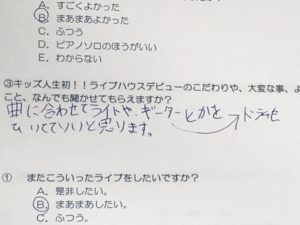 A. すごくよかった
B. まあまあよかった
C. ふつう
D. ピアノソロのほうがいい
E. わからない
③キッズ人生初!!ライブハウスデビューのこだわりや、大変な事、よ
こと、なんでも聞かせてもらえますか?
曲に合わせてライトや、ギーターとかを→ドラムを
ひいててすごいと思ります。
① またこういったライブをしたいですか?
A. 是非したい。
B. まあまあしたい。
C. ふつう。